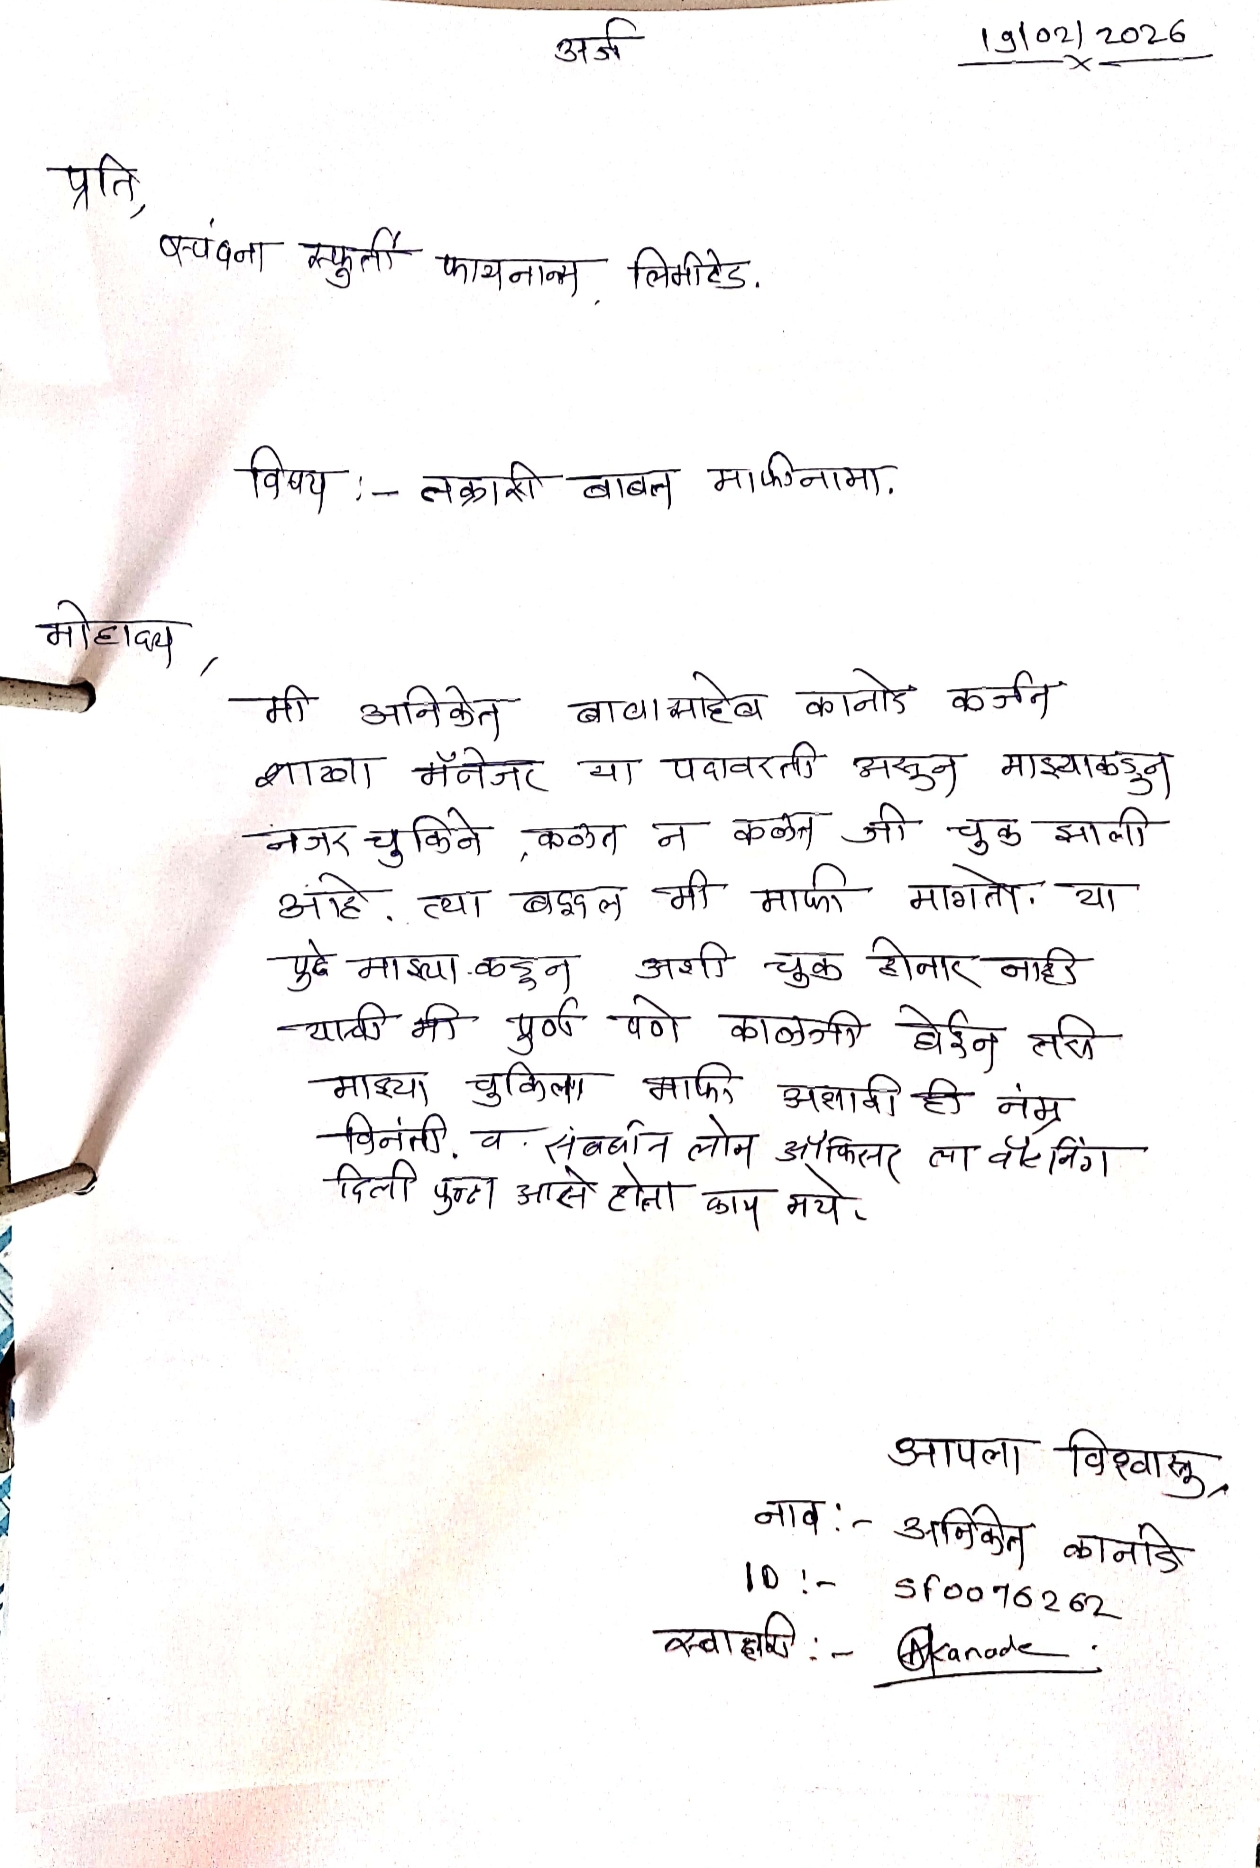 अर्ज
19/02/2026
प्रति,
स्पंदना स्फुर्ती फायनान्स, लिमीटेड.
विषय :- तक्रारी बाबत माफीनामा.
मोहादय,
मी अनिकेत बाबासाहेब कानोडे कर्जत
शाखा मॅनेजर या पदावरती असुन माझ्याकडुन
नजर चुकिने, कळत न कळत जी चुक झाली
आहे. त्या बद्दल मी माफी मागतो. या
पुढे माझ्या कडुन अशी चुक होनार नाही
याची मी पुर्ण पणे काळजी घेईन तरी
माझ्या चुकिला माफी असावी ही नंम्र
विनंती. व संबर्धात लोन ऑफिसर ला वॉरनिंग
दिली पुन्हा आसे होता काम नये.
आपला विश्वासु,
नाव :- अनिकेत कानोडे
ID :- SF0076262
स्वाक्षरी :- AKanade